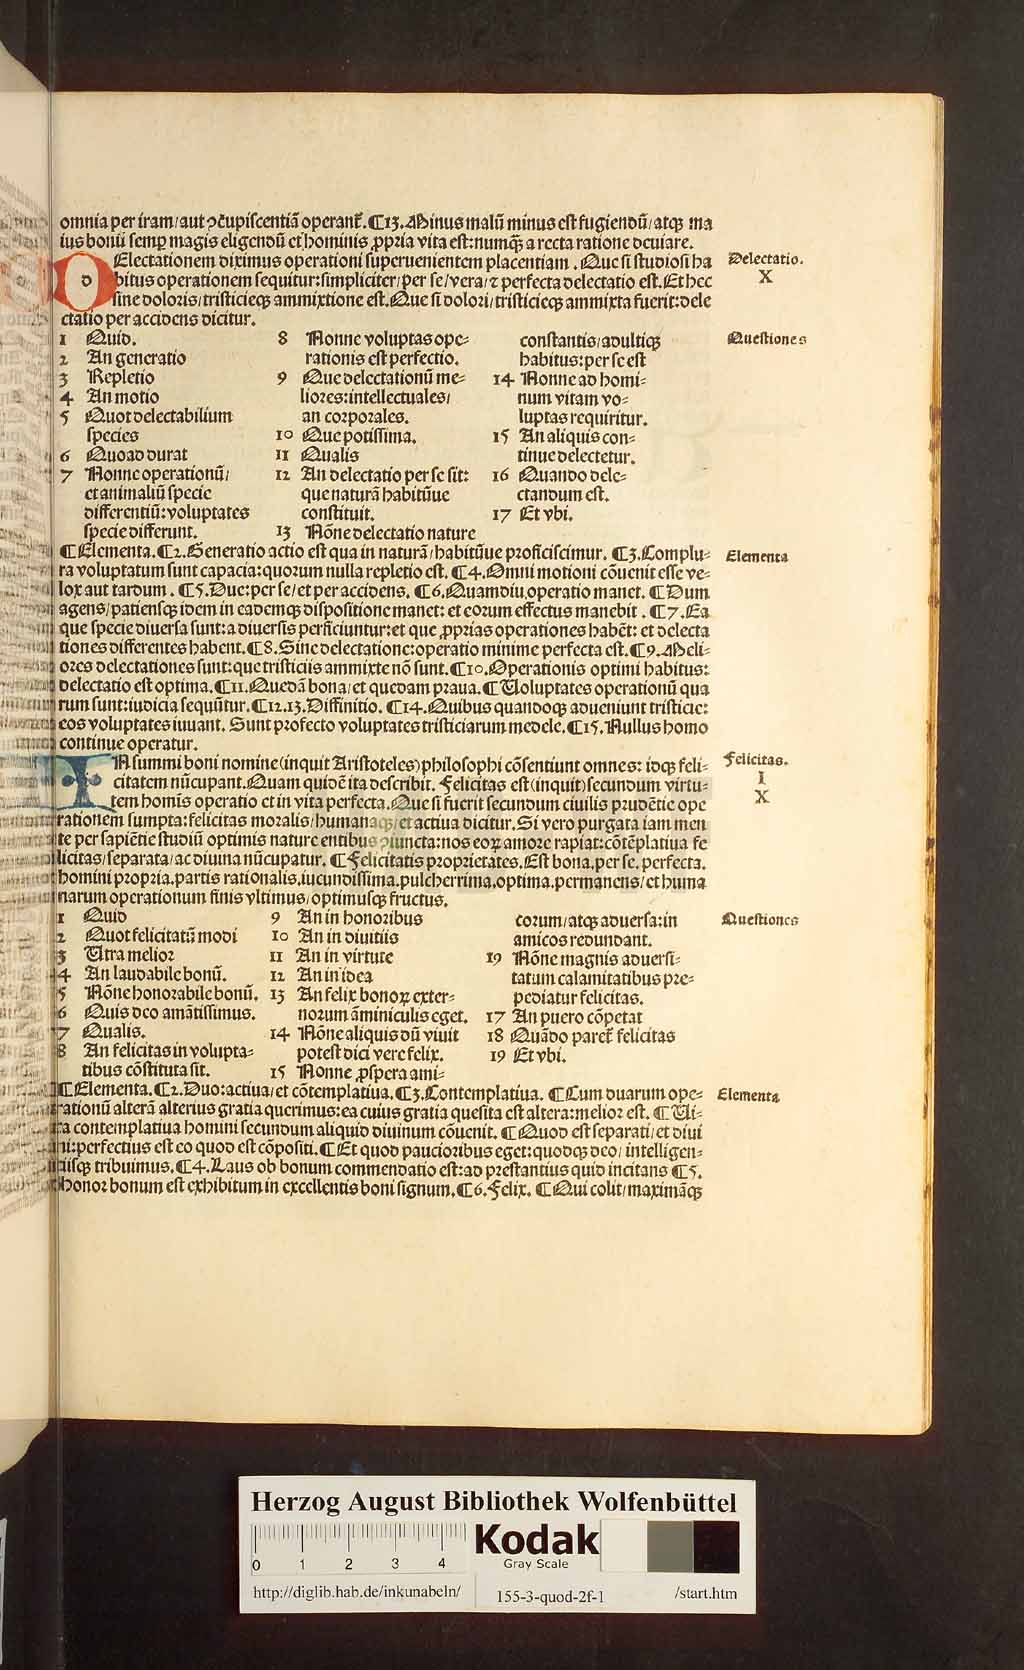 omnia per iram/aut ↄcupiscentiā operant̄. ¶13. Minus malū minus est fugiendū/atqꝫ ma
ius bonū semꝑ magis eligendū et hominis ꝓpria vita est: numqꝫ̄ a recta ratione deuiare.
Delectationem diximus operationi superuenientem placentiam. Que si studiosi ha
bitus operationem sequitur: simpliciter/per se/vera/⁊ perfecta delectatio est. Et hec
sine doloris/tristicieqꝫ ammixtione est. Que si dolori/tristicieqꝫ ammixta fuerit: dele
ctatio per accidens dicitur.
Delectatio.
X
Questiones
1 Quid.
2 An generatio
3 Repletio
4 An motio
5 Quot delectabilium
species
6 Quoad durat
7 Nonne operationū/
et animaliū specie
differentiū: voluptates
specie differunt.
8 Nonne voluptas ope-
rationis est perfectio.
9 Que delectationū me-
liores: intellectuales/
an corporales.
10 Que potissima.
11 Qualis
12 An delectatio per se sit:
que naturā habitūue
constituit.
13 Nōne delectatio nature
constantis/adultiqꝫ
habitus: per se est
14 Nonne ad homi-
num vitam vo-
luptas requiritur.
15 An aliquis con-
tinue delectetur.
16 Quando dele-
ctandum est.
17 Et vbi.
¶Elementa. ¶2. Generatio actio est qua in naturā/habitūue proficiscimur. ¶3. Complu-
ra voluptatum sunt capacia: quorum nulla repletio est. ¶4. Omni motioni cōuenit esse ve-
lox aut tardum. ¶5. Due: per se/et per accidens. ¶6. Quamdiu operatio manet. ¶Dum
agens/patiensqꝫ idem in eademqꝫ dispositione manet: et eorum effectus manebit. ¶7. Ea
que specie diuersa sunt: a diuersis perficiuntur: et que ꝓprias operationes habēt: et delecta
tiones differentes habent. ¶8. Sine delectatione: operatio minime perfecta est. ¶9. Meli-
ores delectationes sunt: que tristiciis ammixte nō sunt. ¶10. Operationis optimi habitus:
delectatio est optima. ¶11. Quedā bona/et quedam praua. ¶Uoluptates operationū qua
rum sunt: iudicia sequūtur. ¶12.13. Diffinitio. ¶14. Quibus quandoqꝫ adueniunt tristicie:
eos voluptates iuuant. Sunt profecto voluptates tristiciarum medele. ¶15. Nullus homo
continue operatur.
Elementa
IN summi boni nomine (inquit Aristoteles) philosophi cōsentiunt omnes: idqꝫ feli-
citatem nūcupant. Quam quidē ita describit. Felicitas est (inquit) secundum virtu-
tem homīs operatio et in vita perfecta. Que si fuerit secundum ciuilis prudētie ope
rationem sumpta: felicitas moralis/humanaqꝫ/et actiua dicitur. Si vero purgata iam men
te per sapiētie studiū optimis nature entibus ↄiuncta: nos eoꝝ amore rapiat: cōtēplatiua fe
licitas/separata/ac diuina nūcupatur. ¶Felicitatis proprietates. Est bona. per se. perfecta.
homini propria. partis rationalis. iucundissima. pulcherrima. optima. permanens/et huma
narum operationum finis vltimus/optimusqꝫ fructus.
Felicitas.
I
X
Questiones
1 Quid
2 Quot felicitatū modi
3 Utra melior
4 An laudabile bonū.
5 Nōne honorabile bonū.
6 Quis deo amātissimus.
7 Qualis.
8 An felicitas in volupta-
tibus cōstituta sit.
9 An in honoribus
10 An in diuitiis
11 An in virtute
12 An in idea
13 An felix bonoꝝ exter-
norum āminiculis eget.
14 Nōne aliquis dū viuit
potest dici vere felix.
15 Nonne ꝓspera ami-
corum/atqꝫ aduersa: in
amicos redundant.
19 Nōne magnis aduersi-
tatum calamitatibus pre-
pediatur felicitas.
17 An puero cōpetat
18 Quādo paret̄ felicitas
19 Et vbi.
¶Elementa. ¶2. Duo: actiua/et cōtemplatiua. ¶3. Contemplatiua. ¶Cum duarum ope-
rationū alterā alterius gratia querimus: ea cuius gratia quesita est altera: melior est. ¶Ui-
ta contemplatiua homini secundum aliquid diuinum cōuenit. ¶Quod est separati/et diui
ni: perfectius est eo quod est cōpositi. ¶Et quod paucioribus eget: quodqꝫ deo/intelligen-
tiisqꝫ tribuimus. ¶4. Laus ob bonum commendatio est: ad prestantius quid incitans ¶5.
Honor bonum est exhibitum in excellentis boni signum. ¶6. Felix. ¶Qui colit/maximāqꝫ
Elementa
Herzog August Bibliothek Wolfenbüttel
0 1 2 3 4
Kodak
Gray Scale
http://diglib.hab.de/inkunabeln/
155-3-quod-2f-1
/start.htm